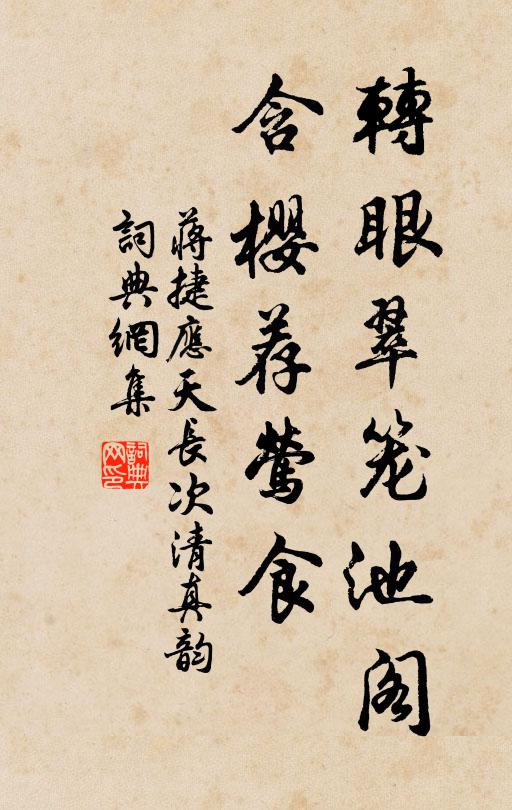 轉眼翠笼池阁
含櫻荐鶯食
蔣捷應天長次清真韵
詞典網集
詞典网印